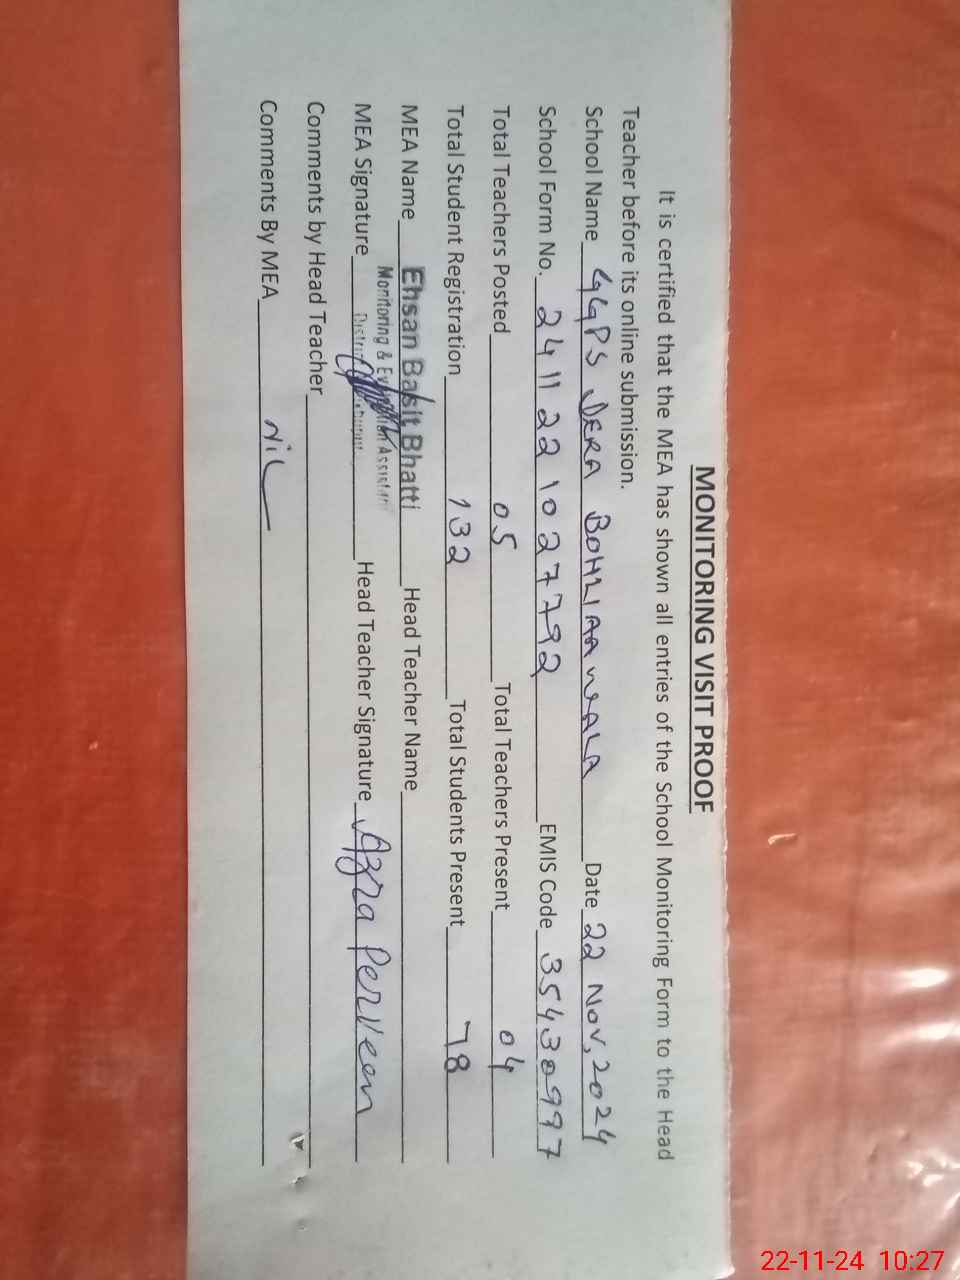 MONITORING VISIT PROOF
It is certified that the MEA has shown all entries of the School Monitoring Form to the Head
Teacher before its online submission.
School Name GGPS DERA BOHLIAANWALA Date 22 Nov, 2024
School Form No. 2411221027792 EMIS Code 35430997
Total Teachers Posted 05 Total Teachers Present 04
Total Student Registration 132 Total Students Present 78
MEA Name Ehsan Basit Bhatti Head Teacher Name
Monitoring & Evaluation Assistant
MEA Signature Head Teacher Signature Azra Perveen
Comments by Head Teacher
Comments By MEA Nil
22-11-24 10:27